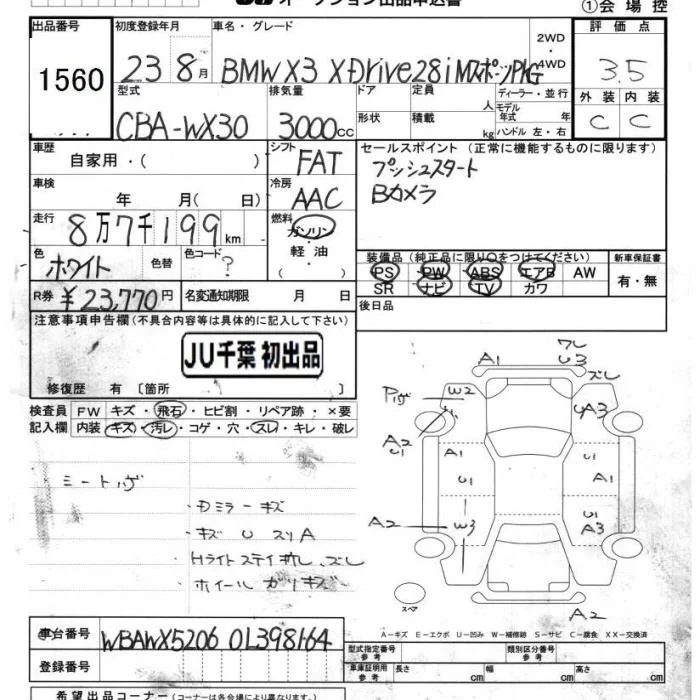 ①会場控
出品番号 初度登録年月 車名・グレード 2WD ・ 4WD 評価点
1560 23 8月 BMW X3 XDrive28i Mスポーツ PKG 3.5
型式 排気量 ドア 定員 人 ディーラー・並行 外装 内装
CBA-WX30 3000cc 形状 積載 kg モデル年式 年 ハンドル 左・右 C C
車歴 自家用・( ) シフト FAT セールスポイント (正常に機能するものに限ります)
プッシュスタート
車検 年 月(日) 冷房 AAC Bカメラ
走行 8万7千199km 燃料 ガソリン・軽油・( )
色 ホワイト 色替 色コード ?
装備品(純正品に限り○をつけてください) 新車保証書
PS PW ABS エアB AW 有・無
SR ナビ TV カワ
R券 ¥23,770円 名変通知期限 月 日 後日品
注意事項申告欄(不具合内容等は具体的に記入して下さい)
JU千葉 初出品
修復歴 有 〔箇所 〕
検査員記入欄 FW キズ・飛石・ヒビ割・リペア跡・×要
内装 キズ・汚レ・コゲ・穴・スレ・キレ・破レ
A1 U3 ズレ
W2 A3
A2 U1
A1 U1 A1
A2 W3 U1 A3
スペア A2
ミラーキズ
キズ U スリA
Hライトステイ ズレ
ホイール ガリキズ
A-キズ E-エクボ U-凹み W-補修跡 S-サビ C-腐食 XX-交換済
車台番号 WBAWX5206 0L398164
登録番号
型式指定番号 参考 類別区分番号 参考
車庫証明用 参考 長さ cm 幅 cm 高さ cm
希望出品コーナー(コーナーは各会場により異なります。)